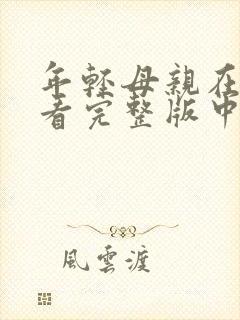 年輕母親在
看完整版中
風雲渡